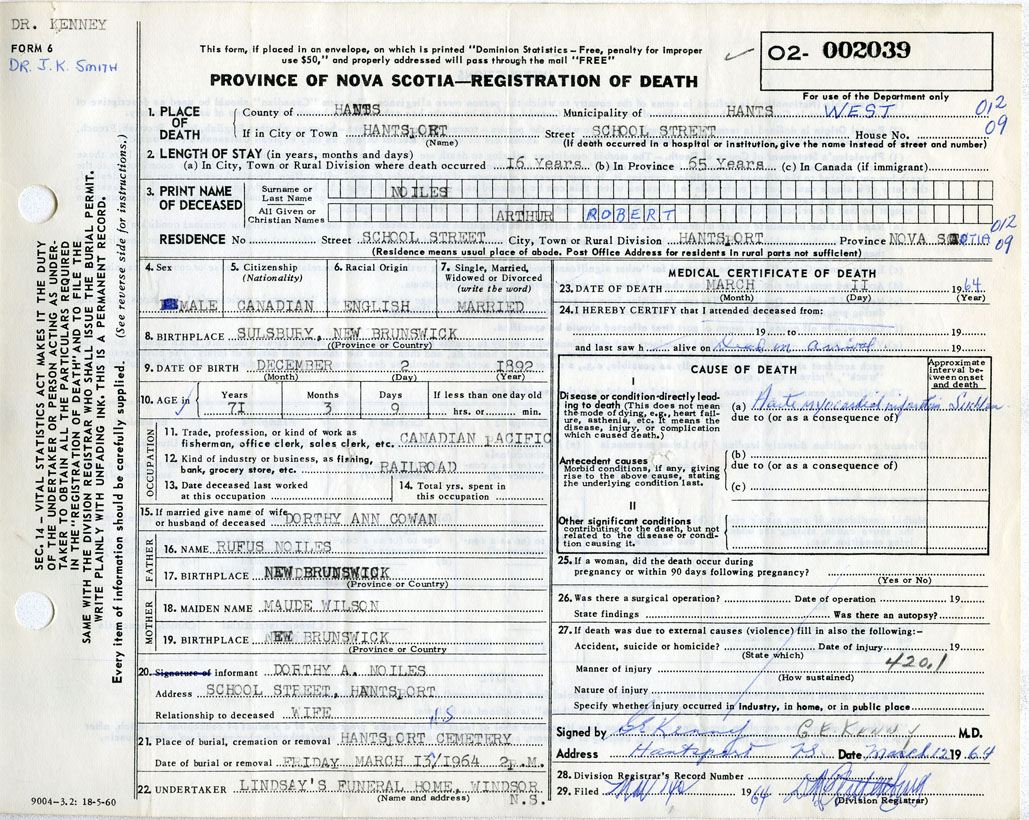 DR. KENNEY
FORM 6
DR. J. K. SMITH
This form, if placed in an envelope, on which is printed "Dominion Statistics – Free, penalty for improper
use $50," and properly addressed will pass through the mail "FREE"
PROVINCE OF NOVA SCOTIA—REGISTRATION OF DEATH
02- 002039
For use of the Department only
SEC. 14 – VITAL STATISTICS ACT MAKES IT THE DUTY
OF THE UNDERTAKER OR PERSON ACTING AS UNDER-
TAKER TO OBTAIN ALL THE PARTICULARS REQUIRED
IN THE "REGISTRATION OF DEATH" AND TO FILE THE
SAME WITH THE DIVISION REGISTRAR WHO SHALL ISSUE THE BURIAL PERMIT.
WRITE PLAINLY WITH UNFADING INK. THIS IS A PERMANENT RECORD.
Every item of information should be carefully supplied. (See reverse side for instructions.)
1. PLACE OF DEATH County of HANTS Municipality of HANTS WEST 012
If in City or Town HANTSPORT Street SCHOOL STREET House No. 09
(Name) (If death occurred in a hospital or institution, give the name instead of street and number)
2. LENGTH OF STAY (in years, months and days)
(a) In City, Town or Rural Division where death occurred 16 Years (b) In Province 65 Years (c) In Canada (if immigrant)
3. PRINT NAME OF DECEASED Surname or Last Name NOILES
All Given or Christian Names ARTHUR ROBERT
RESIDENCE No Street SCHOOL STREET City, Town or Rural Division HANTSPORT Province NOVA SCOTIA 012 09
(Residence means usual place of abode. Post Office Address for residents in rural parts not sufficient)
4. Sex 5. Citizenship (Nationality) 6. Racial Origin 7. Single, Married, Widowed or Divorced (write the word)
MALE CANADIAN ENGLISH MARRIED
8. BIRTHPLACE SULSBURY, NEW BRUNSWICK
(Province or Country)
9. DATE OF BIRTH DECEMBER 2 1892
(Month) (Day) (Year)
10. AGE in Years Months Days If less than one day old
71 3 9 hrs. or min.
OCCUPATION
11. Trade, profession, or kind of work as
fisherman, office clerk, sales clerk, etc. CANADIAN PACIFIC
12. Kind of industry or business, as fishing,
bank, grocery store, etc. RAILROAD
13. Date deceased last worked at this occupation 14. Total yrs. spent in this occupation
15. If married give name of wife
or husband of deceased DORTHY ANN COWAN
FATHER
16. NAME RUFUS NOILES
17. BIRTHPLACE NEW BRUNSWICK
(Province or Country)
MOTHER
18. MAIDEN NAME MAUDE WILSON
19. BIRTHPLACE NEW BRUNSWICK
(Province or Country
20. Signature of informant DORTHY A. NOILES
Address SCHOOL STREET, HANTSPORT
Relationship to deceased WIFE N.S
21. Place of burial, cremation or removal HANTSPORT CEMETERY
Date of burial or removal FRIDAY MARCH 13/1964 2p.M.
22. UNDERTAKER LINDSAY'S FUNERAL HOME, WINDSOR
(Name and address) N.S.
9004-3.2: 18-5-60
MEDICAL CERTIFICATE OF DEATH
23. DATE OF DEATH MARCH 11 1964
(Month) (Day) (Year)
24. I HEREBY CERTIFY that I attended deceased from:
19 to 19
and last saw h alive on Dead on arrival. 19
CAUSE OF DEATH
Approximate interval between onset and death
I
Disease or condition directly lead-
ing to death (This does not mean
the mode of dying, e.g., heart fail-
ure, asthenia, etc. It means the
disease, injury, or complication
which caused death.)
(a) Acute myocardial infarction Sudden
due to (or as a consequence of)
Antecedent causes
Morbid conditions, if any, giving
rise to the above cause, stating
the underlying condition last.
(b)
due to (or as a consequence of)
(c)
II
Other significant conditions
contributing to the death, but not
related to the disease or condi-
tion causing it.
25. If a woman, did the death occur during
pregnancy or within 90 days following pregnancy?
(Yes or No)
26. Was there a surgical operation? Date of operation 19
State findings Was there an autopsy?
27. If death was due to external causes (violence) fill in also the following:–
Accident, suicide or homicide? Date of injury 19
(State which)
Manner of injury 420.1
(How sustained)
Nature of injury
Specify whether injury occurred in industry, in home, or in public place
Signed by G E Kenny G. E. KENNY M.D.
Address Hantsport N.S. Date March 12 1964
28. Division Registrar's Record Number
29. Filed 1964
(Division Registrar)